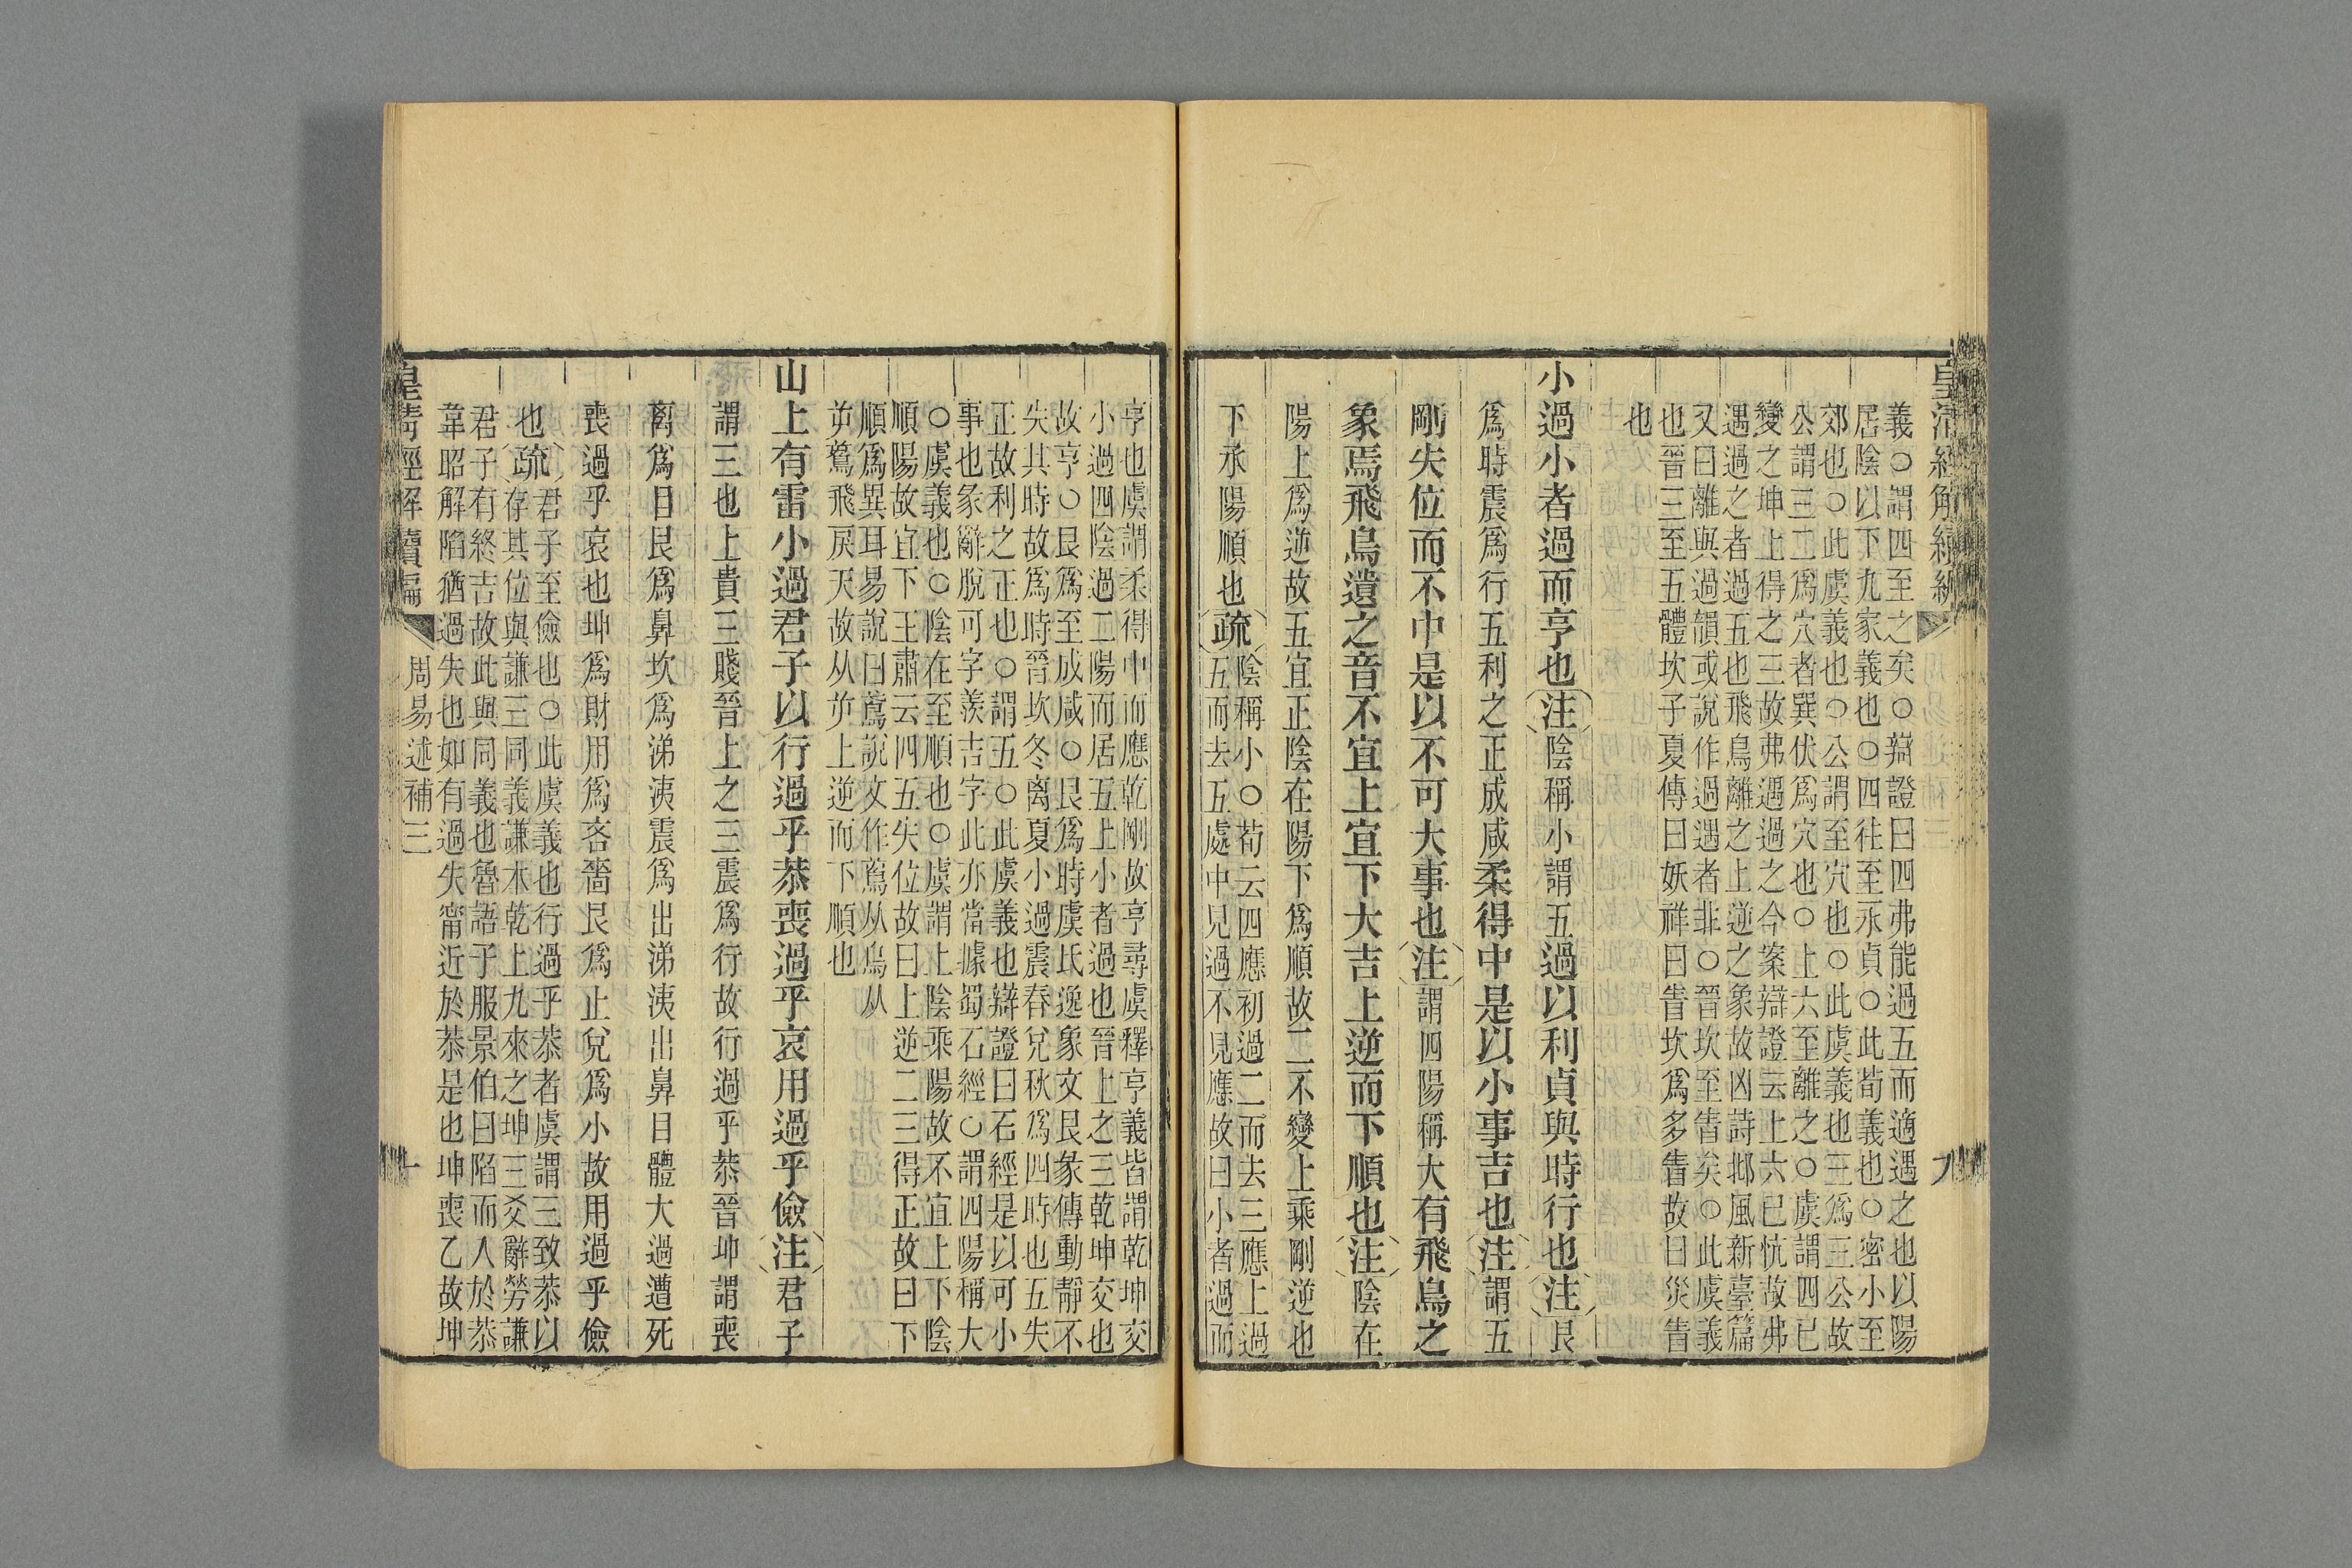 皇清經解續編
九
義○謂四至之矣○辯證曰四弗能過五而適遇之也以陽
居陰以下九家義也○四往至承貞○此荀義也○密小至
郊也○此虞義也○公謂至穴也○此虞義也三爲三公故
公謂三工爲穴者巽伏爲穴也○上六至離之○虞謂四已
變之坤上得之三故弗遇過之今案辯證云上六已忼故弗
遇過之者過五也飛鳥離之上逆之象故凶詩邶風新臺篇
又曰離與過韻或說作過遇者非○晉坎至眚矣○此虞義
也晉三至五體坎子夏傳曰妖祥曰眚坎爲多眚故曰災眚
也
小過小者過而亨也注陰稱小謂五過以利貞與時行也注艮
爲時震爲行五利之正成咸柔得中是以小事吉也注謂五
剛失位而不中是以不可大事也注謂四陽稱大有飛鳥之
象焉飛鳥遺之音不宜上宜下大吉上逆而下順也注陰在
陽上爲逆故五宜正陰在陽下爲順故二不變上乘剛逆也
下承陽順也疏陰稱小○荀云四應初過二而去三應上過
五而去五處中見過不見應故曰小者過而
亨也虞謂柔得中而應乾剛故亨尋虞釋亨義皆謂乾坤交
小過四陰過二陽而居五上小者過也晉上之三乾坤交也
故亨○艮爲至成咸○艮爲時虞氏逸象文艮彖傳動靜不
失其時故爲時晉坎冬離夏小過震春兌秋爲四時也五失
正故利之正也○謂五○此虞義也辯證曰石經是以可小
事也彖辭脫可字羨吉字此亦當據蜀石經○謂四陽稱大
○虞義也○陰在至順也○虞謂上陰乘陽故不宜上下陰
順陽故宜下王肅云四五失位故曰上逆二三得正故曰下
順爲異耳易說曰鳶說文作䳒从鳥从
屰鳶飛戾天故从屰上逆而下順也
山上有雷小過君子以行過乎恭喪過乎哀用過乎儉注君子
謂三也上貴三賤晉上之三震爲行故行過乎恭晉坤謂喪
离爲目艮爲鼻坎爲涕洟震爲出涕洟出鼻目體大過遭死
喪過乎哀也坤爲財用爲吝嗇艮爲止兌爲小故用過乎儉
也疏君子至儉也○此虞義也行過乎恭者虞謂三致恭以
存其位與謙三同義謙本乾上九來之坤三爻辭勞謙
君子有終吉故此與同義也魯語子服景伯曰陷而入於恭
韋昭解陷猶過失也如有過失甯近於恭是也坤喪乙故坤
皇清經解續編
周易述補三